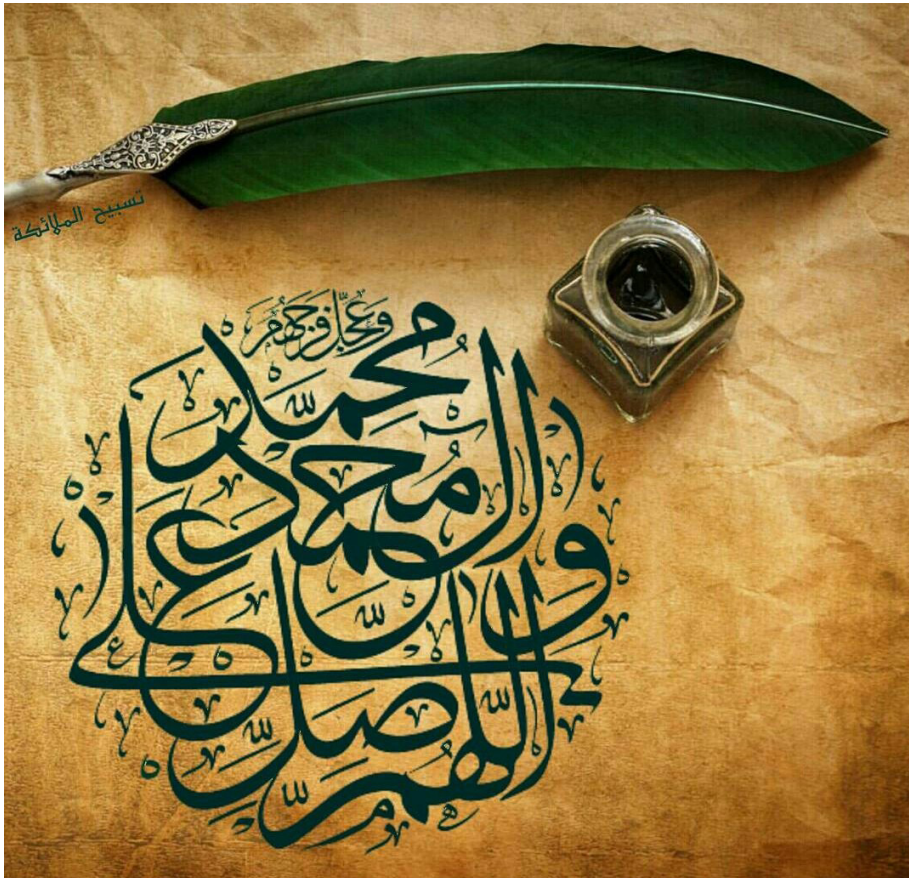 تسبيح الملائكة
اللهم صل على محمد وال محمد
وعجل فرجهم